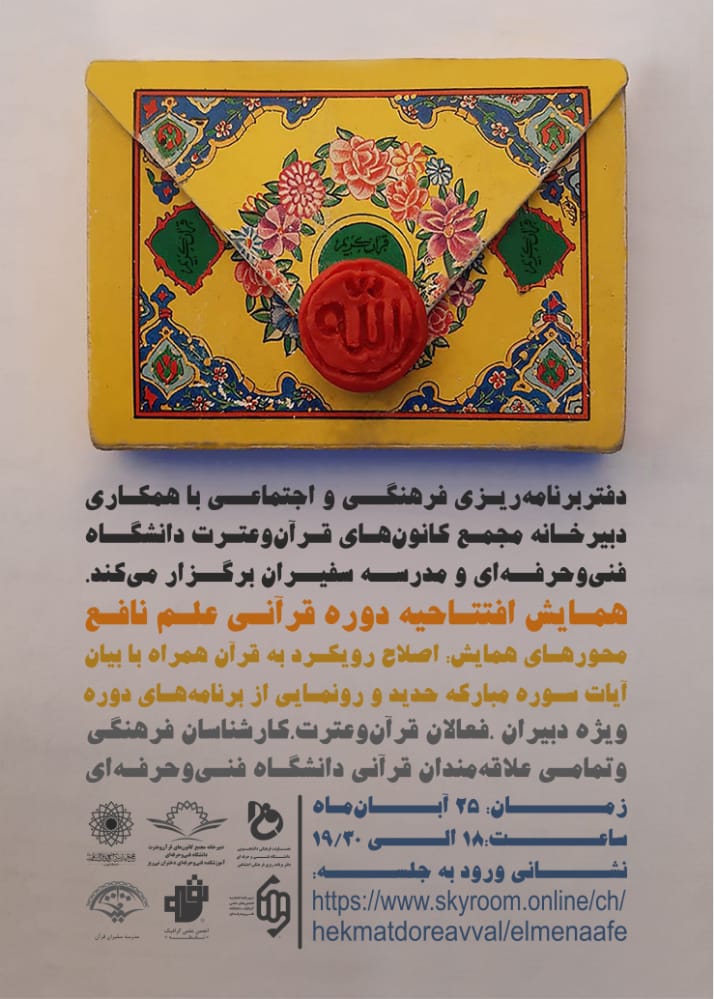 قرآن کریم
قرآن کریم
قرآن کریم
الله
دفتر برنامه‌ریزی فرهنگی و اجتماعی با همکاری
دبیرخانه مجمع کانون‌های قرآن‌وعترت دانشگاه
فنی‌وحرفه‌ای و مدرسه سفیران برگزار می‌کند.
همایش افتتاحیه دوره قرآنی علم نافع
محورهای همایش: اصلاح رویکرد به قرآن همراه با بیان
آیات سوره مبارکه حدید و رونمایی از برنامه‌های دوره
ویژه دبیران ،فعالان قرآن‌وعترت،کارشناسان فرهنگی
وتمامی علاقه‌مندان قرآنی دانشگاه فنی‌وحرفه‌ای
زمان: ۲۵ آبان‌ماه
ساعت:۱۸ الی ۱۹/۳۰
نشانی ورود به جلسه:
https://www.skyroom.online/ch/
hekmatdoreavval/elmenaafe
معاونت فرهنگی دانشجویی
دانشگاه فنی و حرفه ای
دفتر برنامه ریزی فرهنگی اجتماعی
دبیرخانه مجمع کانون‌های قرآن‌وعترت
دانشگاه فنی‌وحرفه‌ای
آموزشکده فنی‌وحرفه‌ای دختران نی‌ریز
انجمن علمی گرافیک
نقطه
مدرسه سفیران قرآن